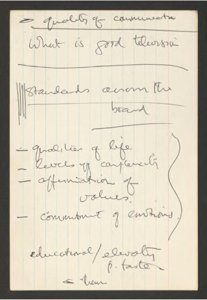 - quality of communicati
What is good television
Standards across the
board
- qualities of life
- levels of complexity
- affirmation of
values.
- commitment of emotions
educational/elevate
p. taste